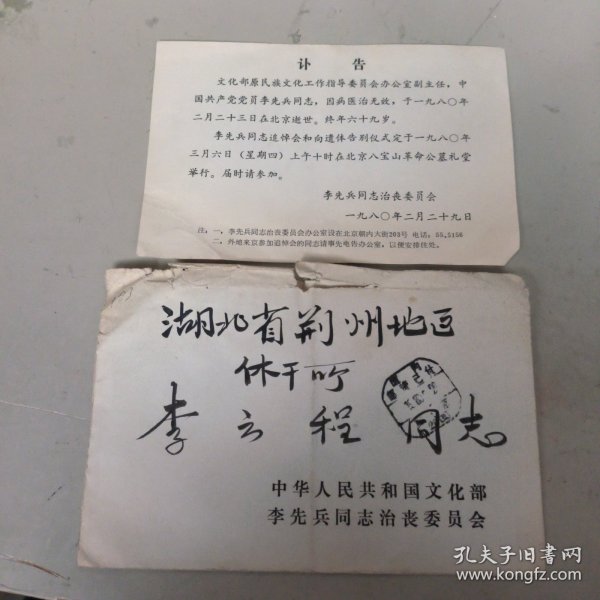 讣告
文化部原民族文化工作指导委员会办公室副主任，中
国共产党党员李先兵同志，因病医治无效，于一九八〇年
二月二十三日在北京逝世。终年六十九岁。
李先兵同志追悼会和向遗体告别仪式定于一九八〇年
三月六日（星期四）上午十时在北京八宝山革命公墓礼堂
举行。届时请参加。
李先兵同志治丧委员会
一九八〇年二月二十九日
注：一，李先兵同志治丧委员会办公室设在北京朝内大街203号 电话：55.5156
二，外地来京参加追悼会的同志请事先电告办公室，以便安排住处。
湖北省荆州地区
休干所
李云程 同志
国内
邮资已付
中华人民共和国文化部
李先兵同志治丧委员会
孔夫子旧书网
www.kongfz.com